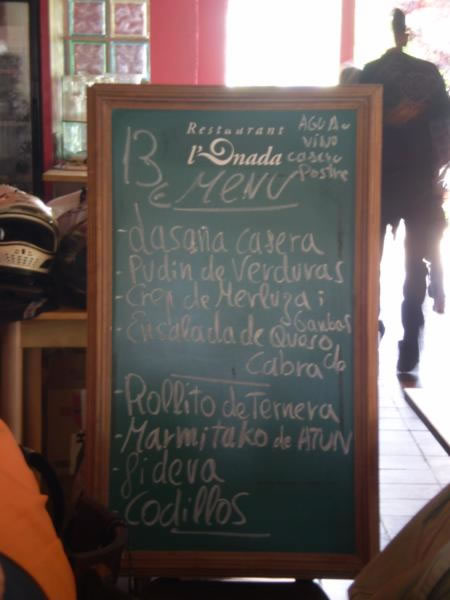 Restaurant
l'Onada
AGUA o
VINO
casero
Postre
13 €
MENU
- Lasaña casera
- Pudin de Verduras
- Crep de Merluza i
Gambas
- Ensalada de Queso
de
Cabra
- Rollito de Ternera
- Marmitako de ATUN
- fideva
- Codillos